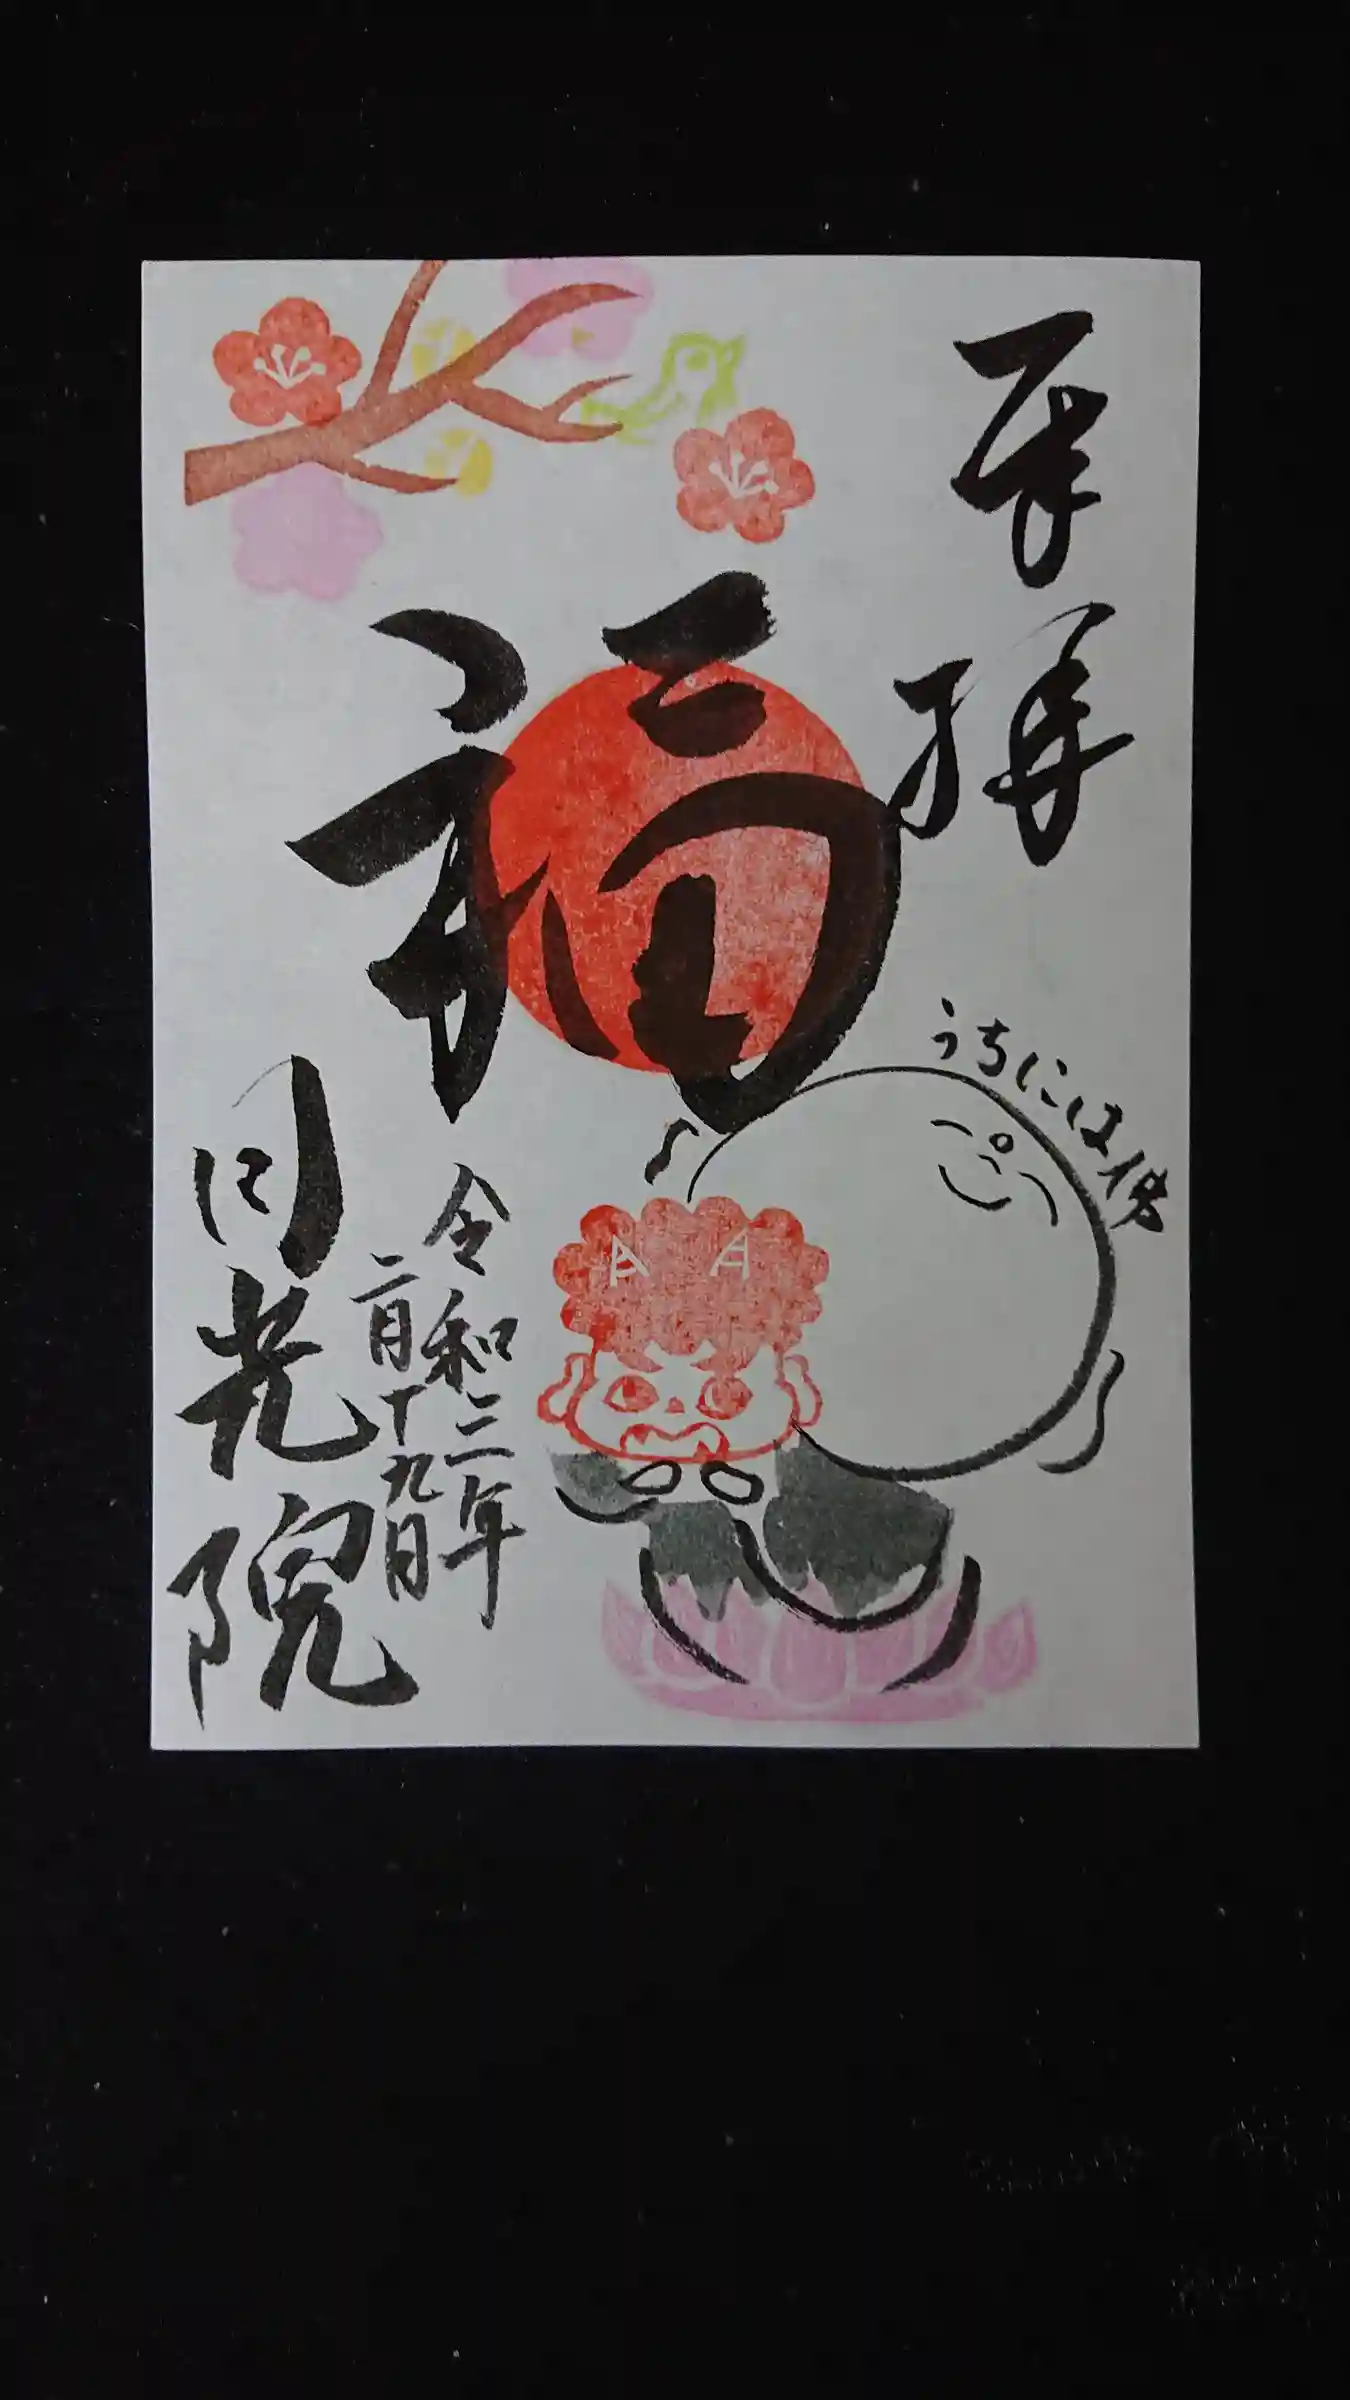 奉拝
福
うちには佛
令和三年
二月十九日
日光院